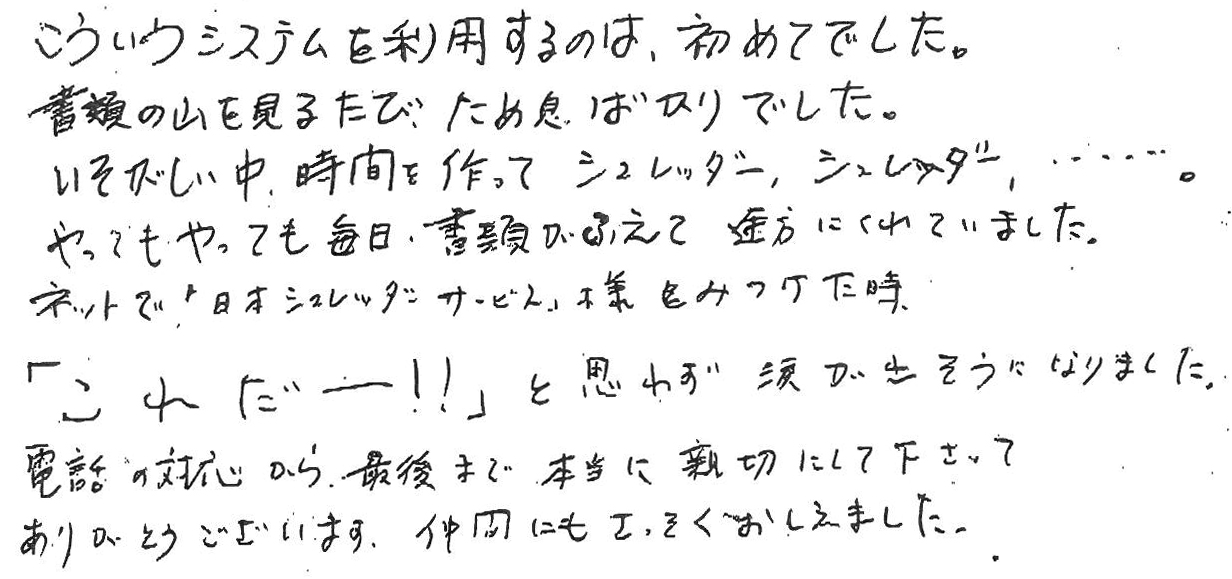 こういうシステムを利用するのは、初めてでした。
書類の山を見るたび、ため息ばかりでした。
いそがしい中、時間を作って シュレッダー, シュレッダー, ‥‥‥。
やってもやっても毎日、書類がふえて 途方にくれていました。
ネットで「日本シュレッダーサービス」様をみつけた時
「これだー!!」と思わず 涙が出そうになりました。
電話の対応から、最後まで 本当に 親切にして下さって
ありがとうございます。仲間にもさっそくおしえました。